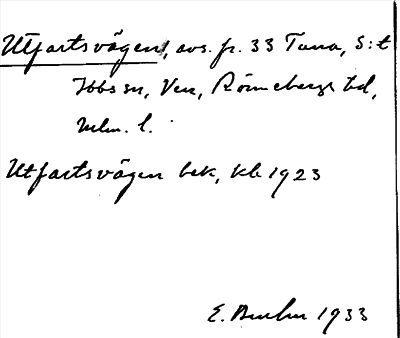 Utfartsvägen, avs. fr. 33 Tuna, S:t
Ibbs sn, Ven, Rönnebergs hd,
Mlm. l.
Utfartsvägen bek, kb 1923
E. 1933